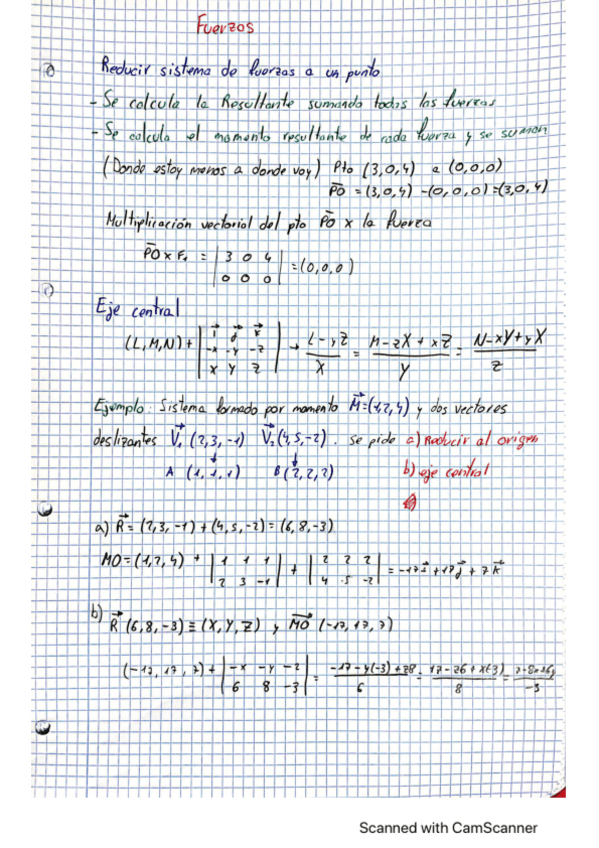 Fuerzas
Reducir sistema de fuerzas a un punto
- Se calcula la Resultante sumando todas las fuerzas
- Se calcula el momento resultante de cada fuerza y se suman
(Donde estoy menos a donde voy) Pto (3,0,4) a (0,0,0)
PO = (3,0,4) - (0,0,0) = (3,0,4)
Multiplicación vectorial del pto PO x la fuerza
PO x F₁ = | 3 0 4 | = (0,0,0)
| 0 0 0 |
Eje central
(L,M,N) + | i j k | → L-yZ = M-zX+xZ = N-xY+yX
| -x -y -z | X Y Z
| X Y Z |
Ejemplo: Sistema formado por momento M=(1,2,4) y dos vectores
deslizantes V₁ (2,3,-1) V₂(4,5,-2). se pide a) Reducir al origen
A (1,1,1) B(2,2,2) b) eje central
a) R = (2,3,-1) + (4,5,-2) = (6,8,-3)
MO = (1,2,4) + | 1 1 1 | + | 2 2 2 | = -17i + 17j + 7k
| 2 3 -1 | | 4 5 -2 |
b) R (6,8,-3) ≡ (X,Y,Z) y MO (-17,17,7)
(-17,17,7) + | -x -y -z | = -17-y(-3)+z8 = 17-z6+x(-3) = 7-8x+6y
| 6 8 -3 | 6 8 -3
Scanned with CamScanner